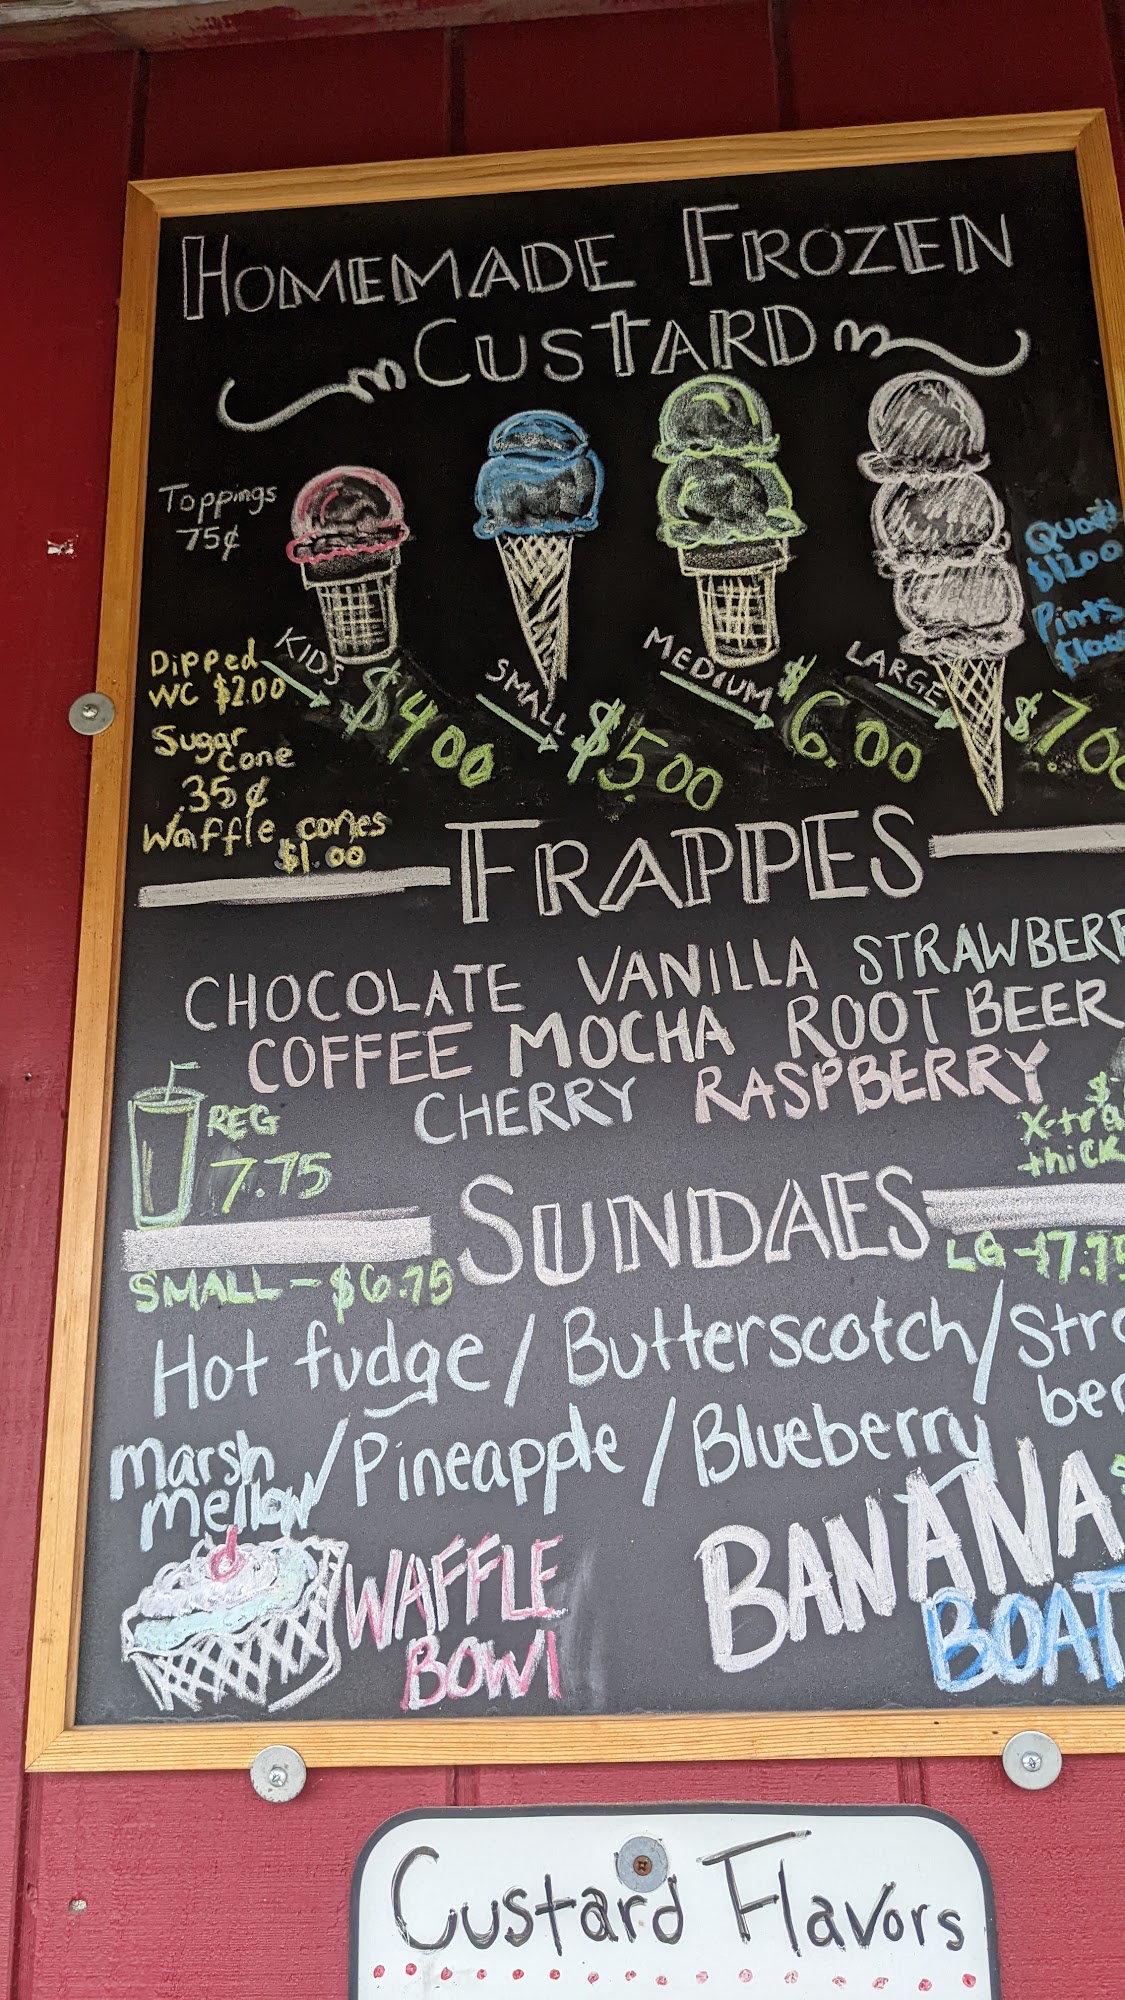 HOMEMADE FROZEN
CUSTARD
Toppings
75¢
Quart
$12.00
Pints
Dipped
WC $2.00
Sugar
cone
.35¢
Waffle cones
$1.00
KIDS
$4.00
SMALL
$5.00
MEDIUM
$6.00
LARGE
$7.00
FRAPPES
CHOCOLATE VANILLA
COFFEE MOCHA ROOT BEER
CHERRY RASPBERRY
REG
7.75
thick
SUNDAES
SMALL - $6.75
LG - $7.75
Hot fudge / Butterscotch /
Marsh
mellow / Pineapple / Blueberry
WAFFLE
BOWl
BANANA
BOAT
Custard Flavors